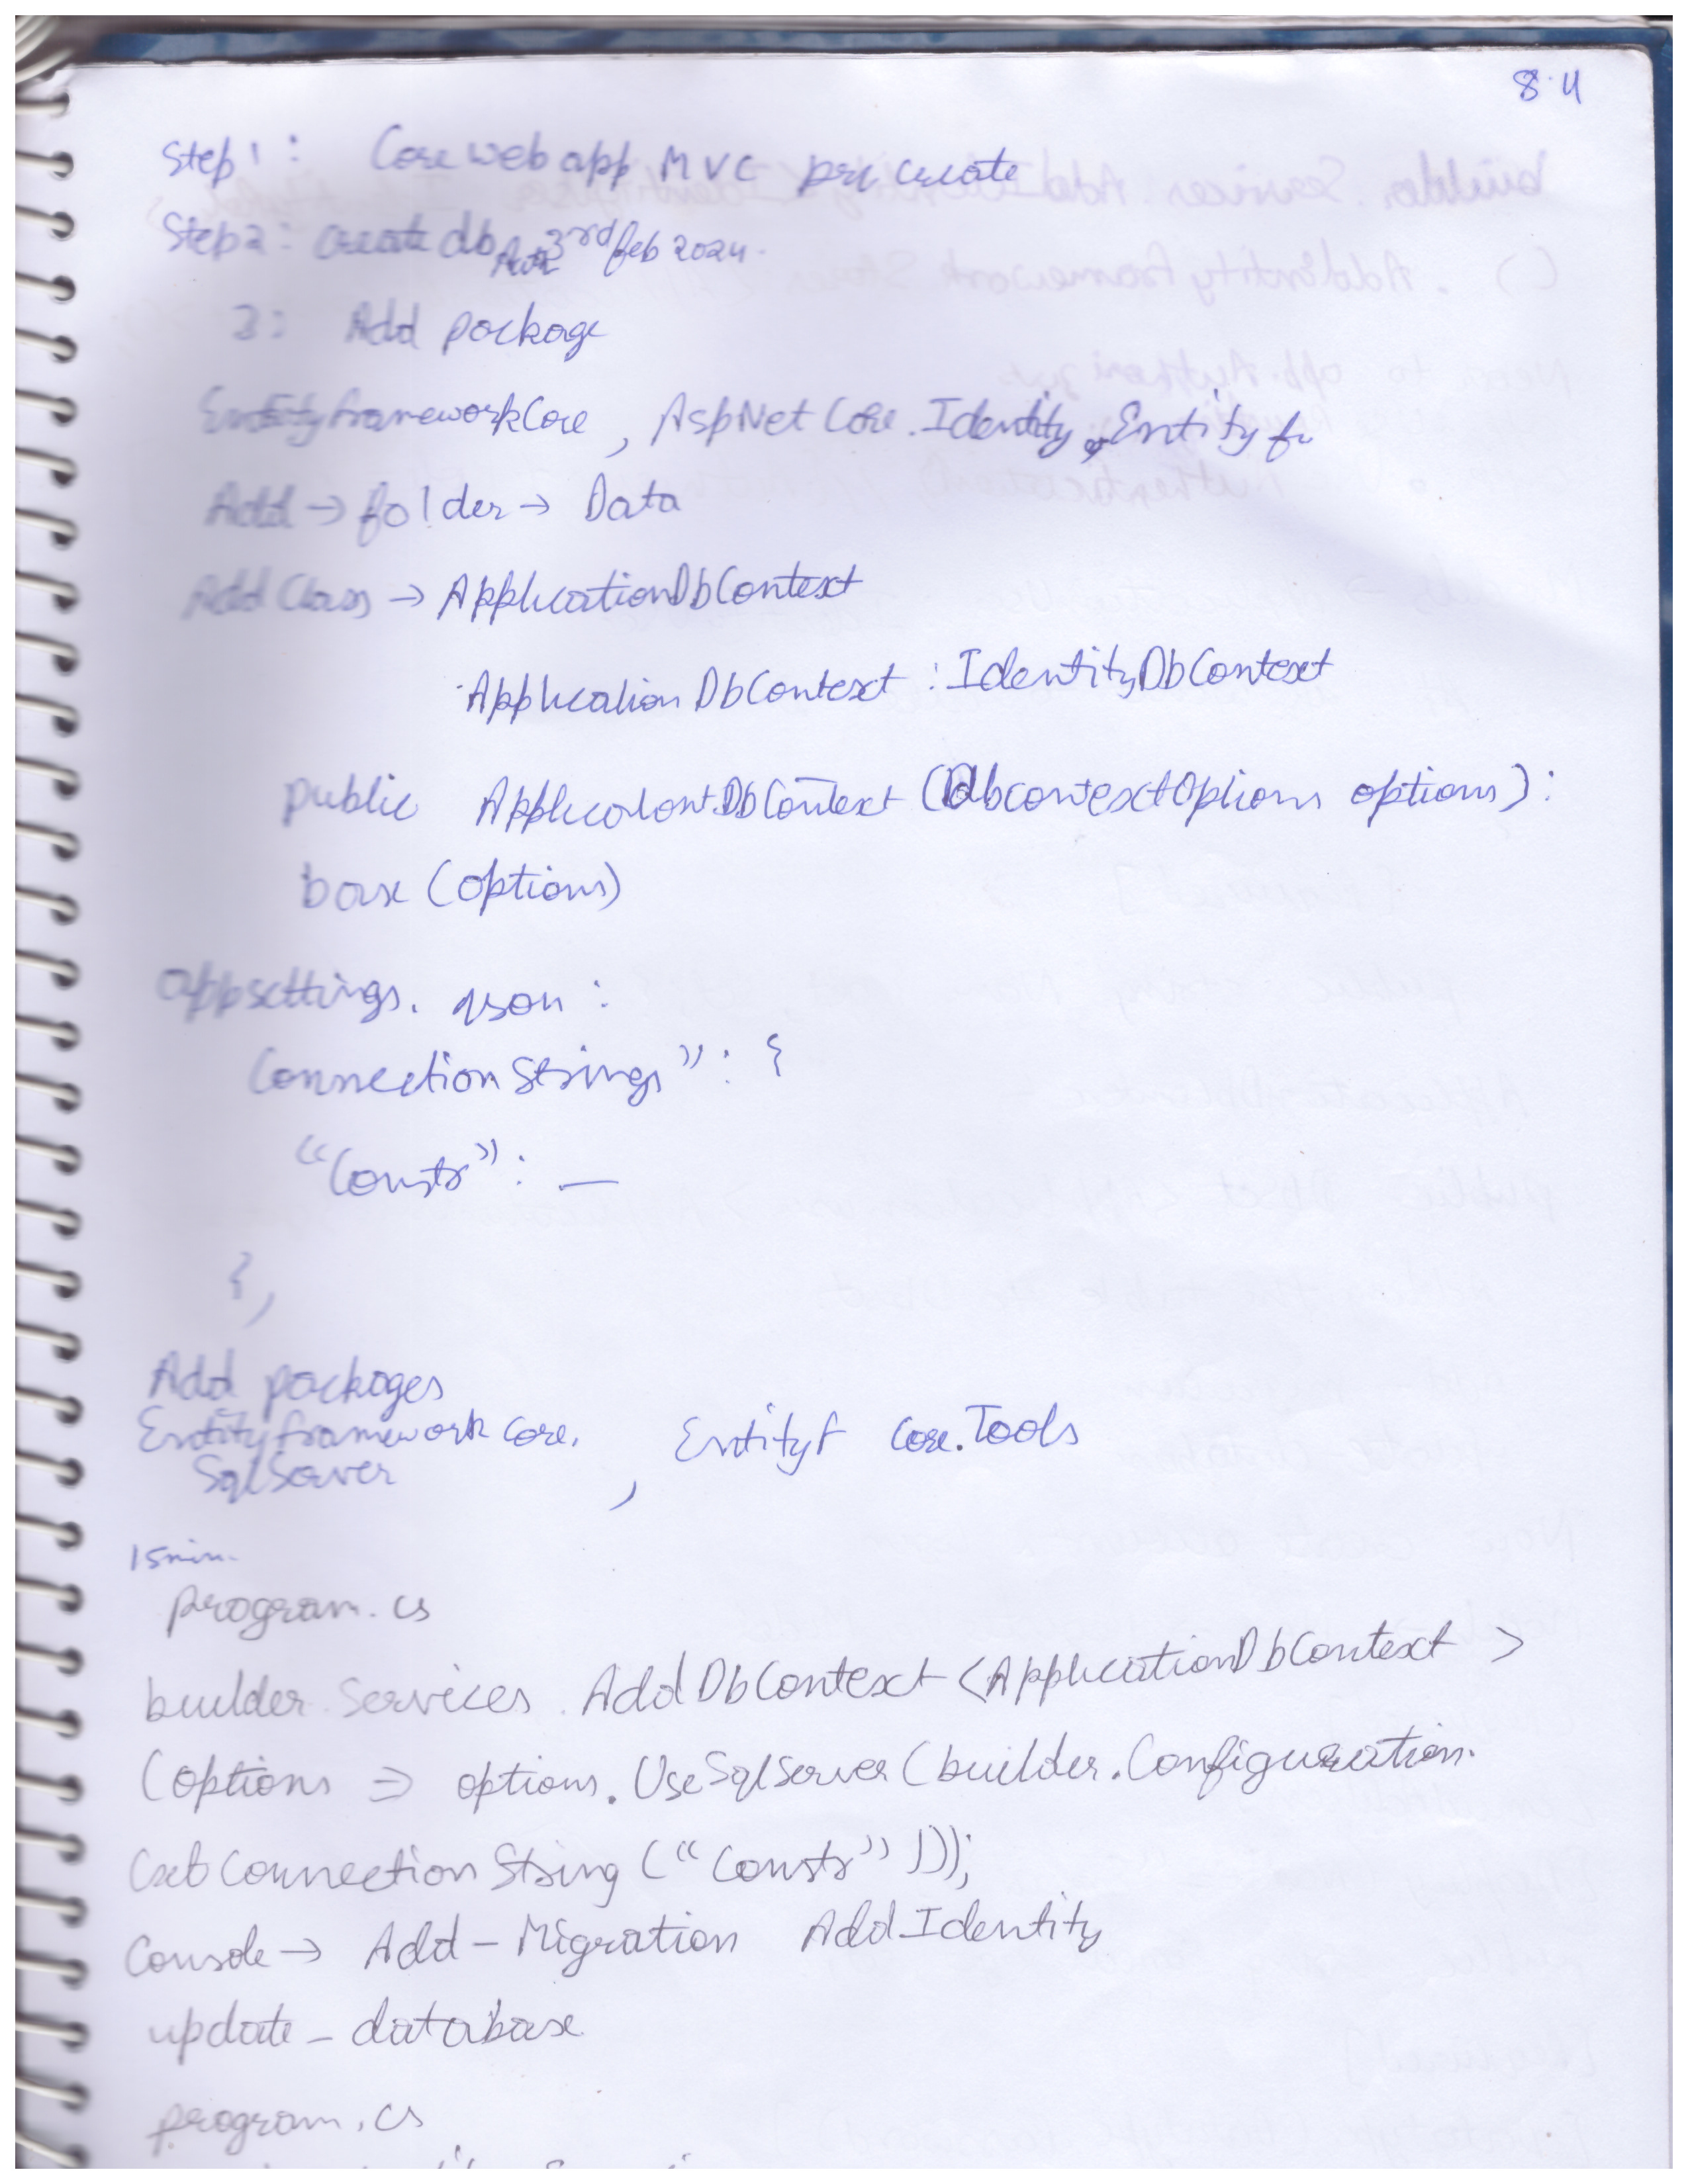 8.4
Step 1: Core web app MVC create
Step 2: create db 3rd feb 2024.
3: Add package
EntityframeworkCore, AspNetCore.Identity.Entityfr
Add → folder → Data
Add Class → ApplicationDbContext
ApplicationDbContext : IdentityDbContext
public ApplicationDbContext (DbcontextOptions options) :
base (options)
appsettings. json :
Connection Strings" : {
"Constr" : —
},
Add packages
Entityframework Core. , EntityF Core.Tools
SqlServer
15min.
program.cs
builder.Services.AddDbContext<ApplicationDbContext>
(options => options.UseSqlServer(builder.Configuration.
GetConnectionString ("Constr")));
Console → Add-Migration AddIdentity
update-database
program.cs